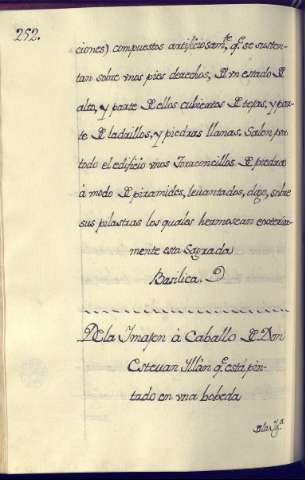 252.
ciones) compuestos artificiosamte, qe se susten-
tan sobre vnos pies derechos, De vn estado De
alto, y parte De ellos cubiertos De tejas, y par-
te De ladrillos, y piedras llanas. Salen por
todo el edificio vnos Torreoncillos De piedra
à modo De piramides, levantados, digo, sobre
sus pilastras los quales hermosean exterior-
mente esta Sagrada
Basilica.
De la Imajen à Caballo De Don
Estevan Illàn qe està pin-
tado en vna bobeda